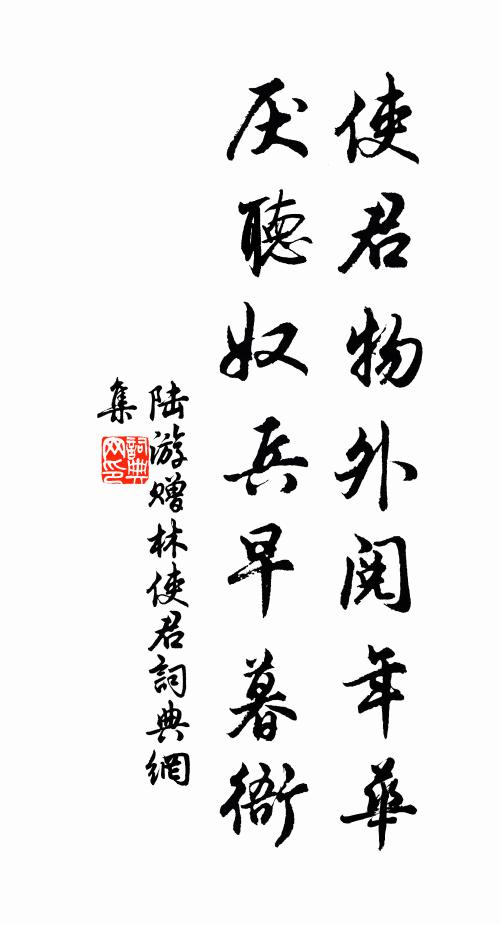 使君物外閱年華
厌聽奴兵早暮衙
陆游赠林使君詞典網
集
詞典网印